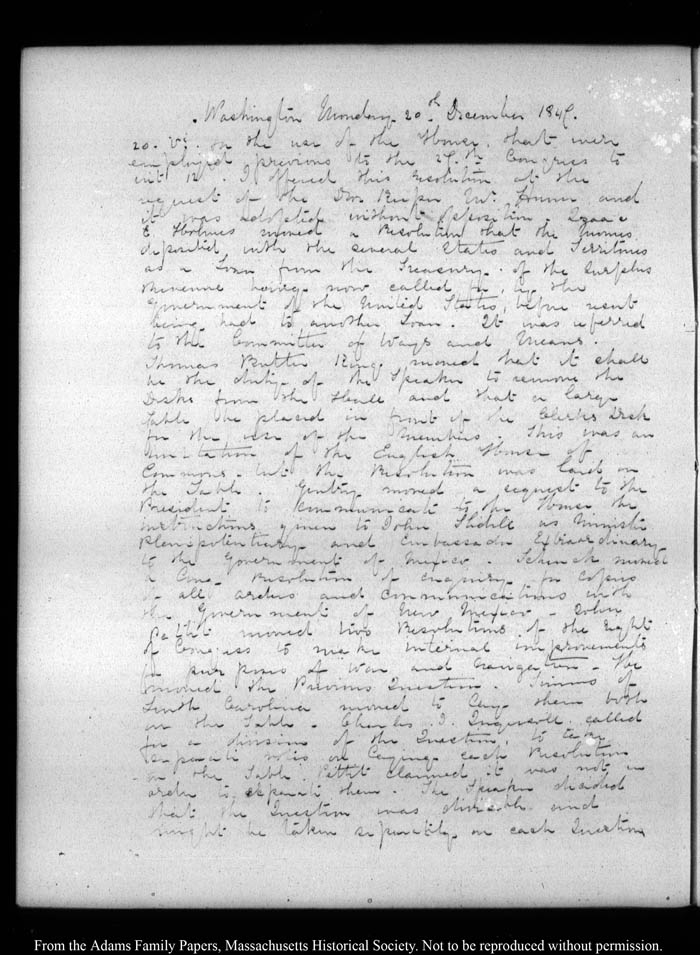 Washington Monday 20th December 1847.
20. VI. for the use of the House, that were
employed previous to the 27.th Congress to
wit 12. I offered this resolution at the
request of the Door Keeper Mr. Horner and
it was adopted without opposition. Isaac
E. Holmes moved a Resolution that the monies
deposited with the several States and Territories
as a Loan from the Treasury of the Surplus
Revenue being now called for by the
Government of the United States, before resort
being had to another Loan. It was referred
to the Committee of Ways and Means.
Thomas Butler King moved that it shall
be the duty of the Speaker to remove the
Desks from the Hall and that a large
Table be placed in front of the Clerks Desk
for the use of the Members. This was an
imitation of the English House of
Commons, but the Resolution was laid on
the Table. Gentry moved a request to the
President to communicate to the House the
instructions given to John Slidell as Minister
Plenipotentiary and Embassador Extraordinary
to the Government of Mexico. Schenck moved
a Resolution of enquiry for copies
of all orders and communications with
the Government of New Mexico - John
Pettit moved two Resolutions of the right
of Congress to make internal improvements
for purposes of war and navigation - He
moved the Previous Question. Simms of
South Carolina moved to lay them both
on the Table. Charles J. Ingersoll called
for a division of the Question, to take
separate votes on laying each Resolution
on the Table. Pettit claimed it was not in
order to separate them. The Speaker decided
that the Question was divisible and
might be taken separately on each Question
From the Adams Family Papers, Massachusetts Historical Society. Not to be reproduced without permission.